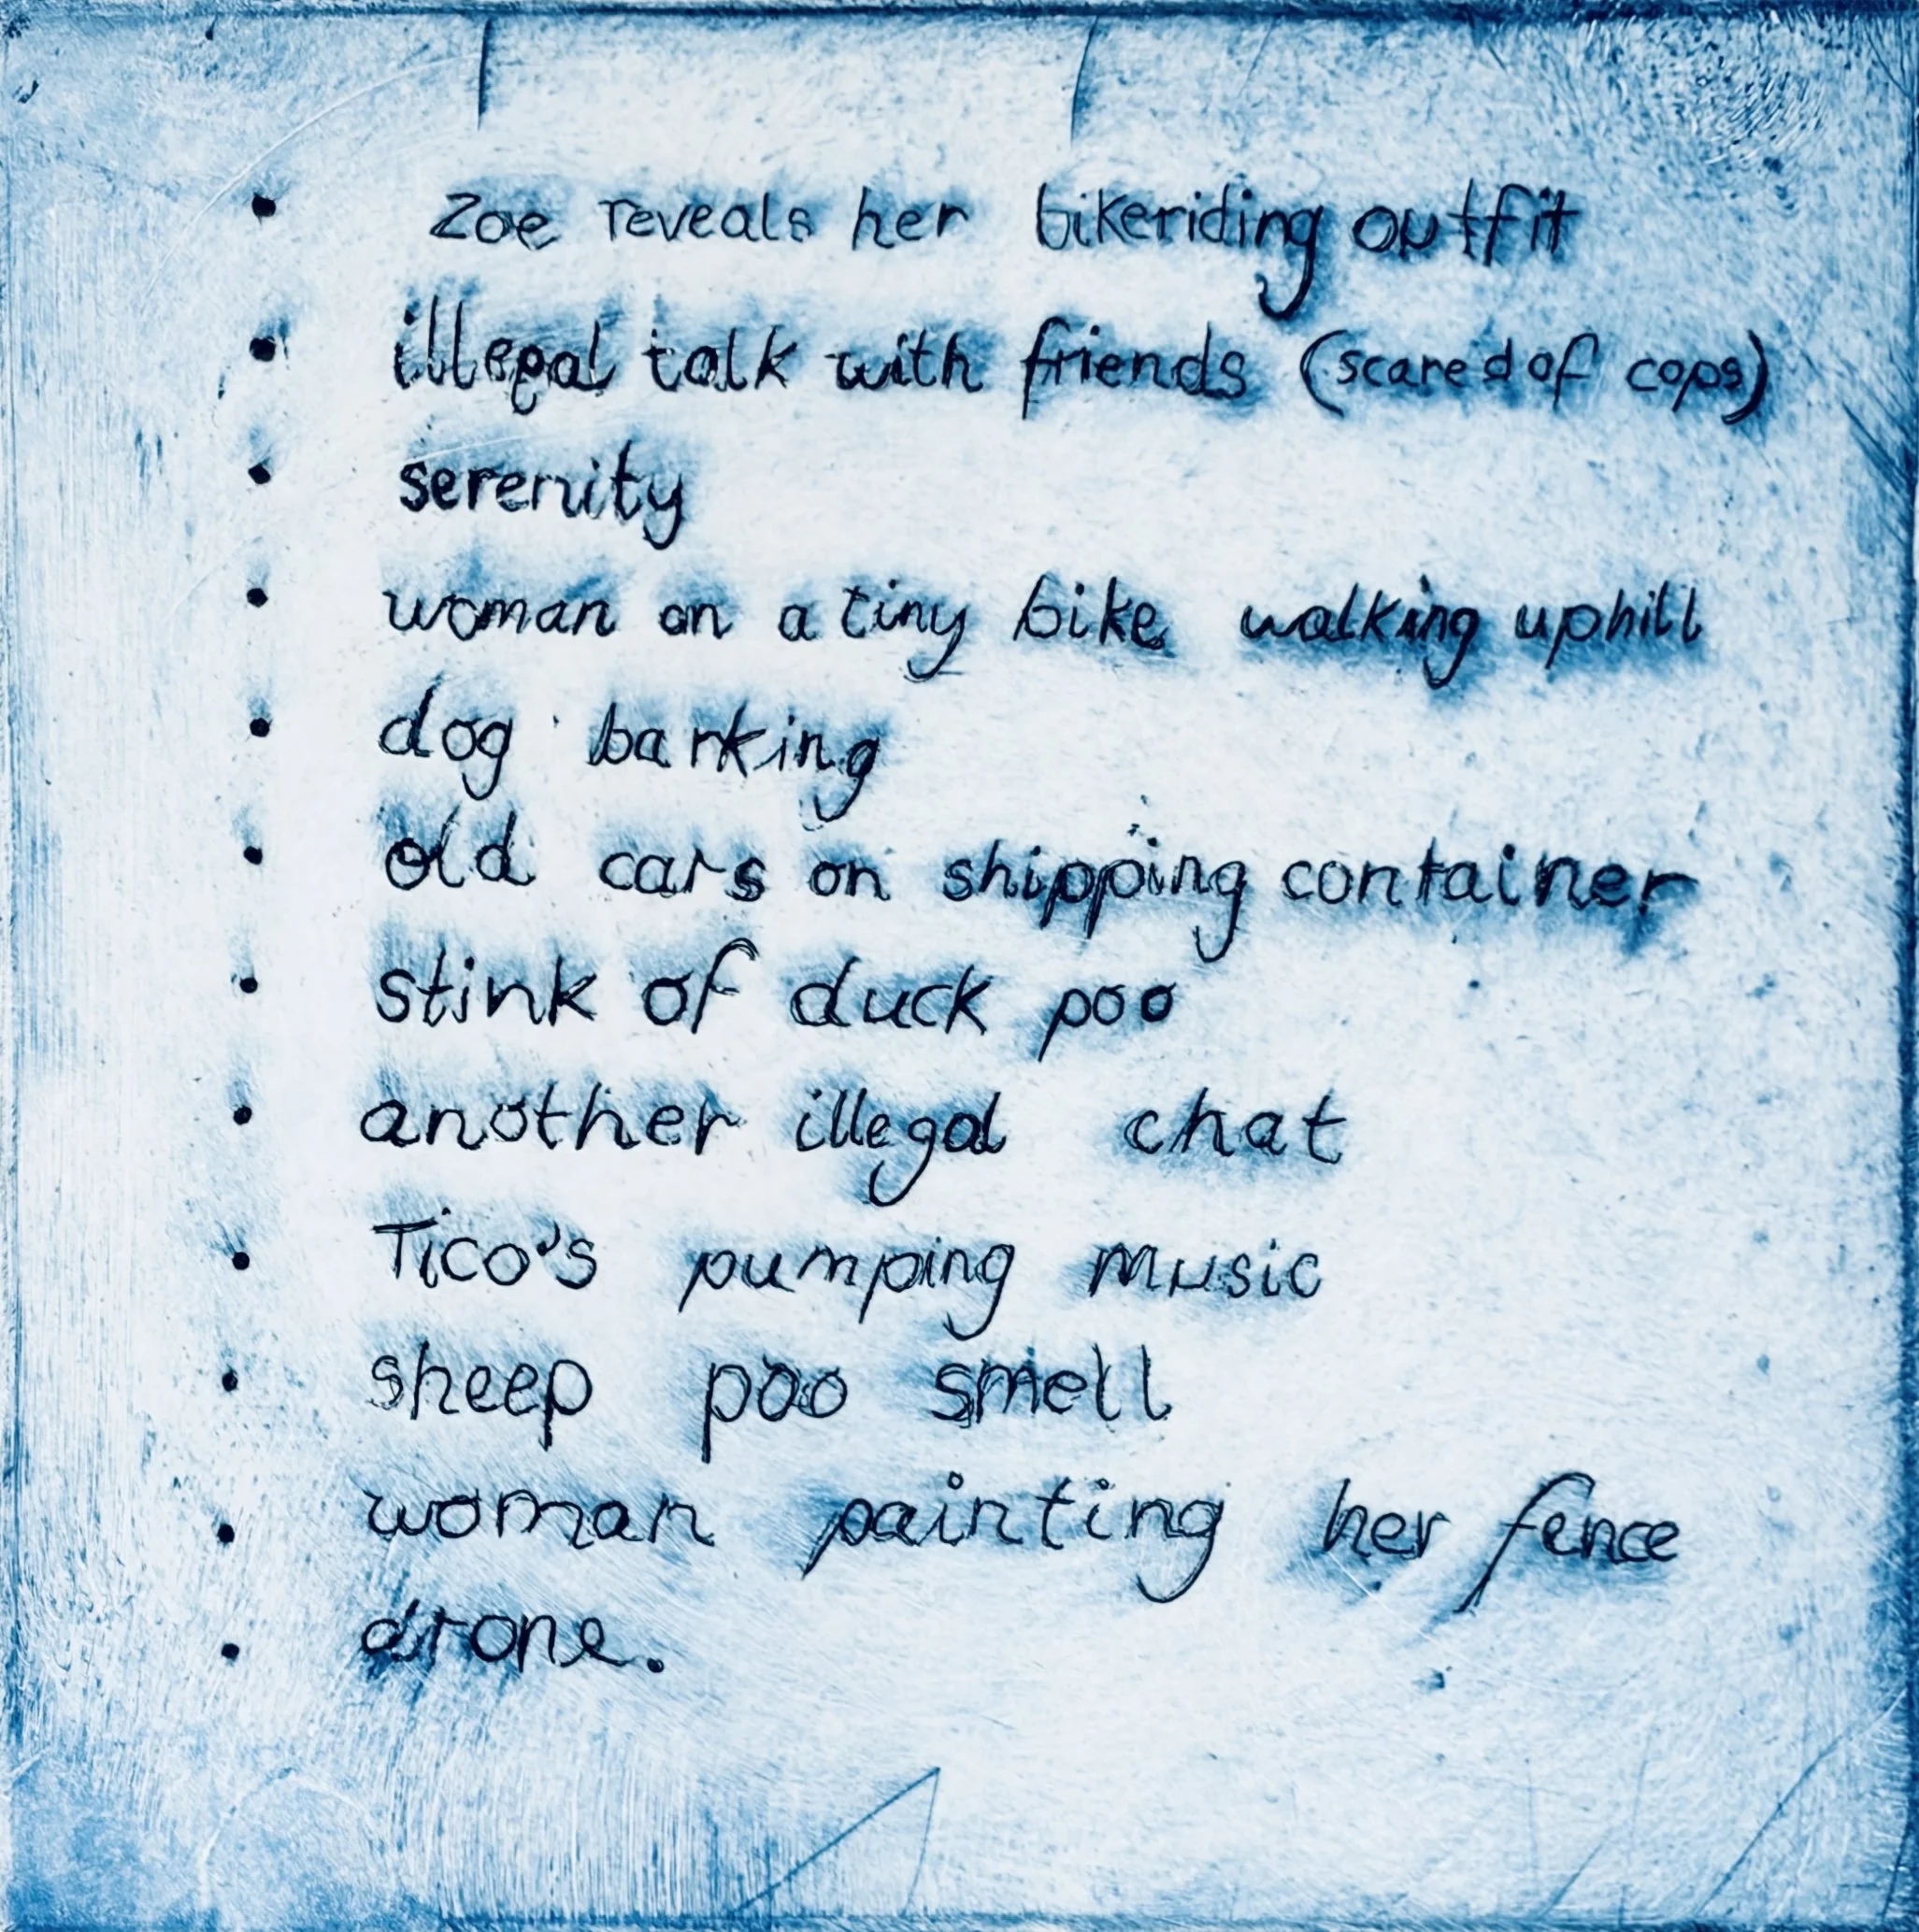 • Zoe reveals her bikeriding outfit
• illegal talk with friends (scared of cops)
• serenity
• woman on a tiny bike walking uphill
• dog barking
• old cars on shipping container
• stink of duck poo
• another illegal chat
• Tico's pumping music
• sheep poo smell
• woman painting her fence
• drone.